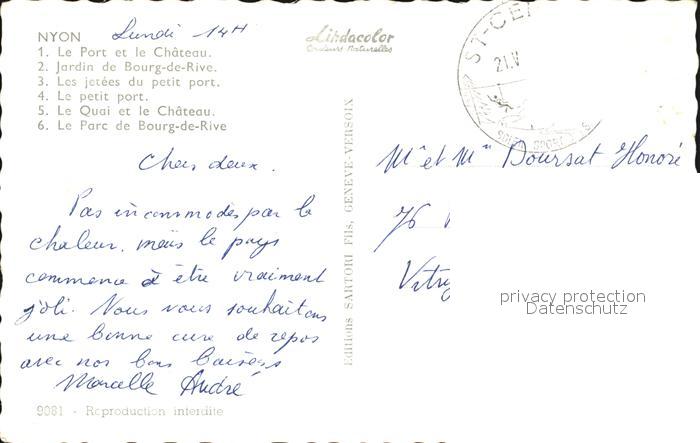 NYON Lundi 14H
1. Le Port et le Château.
2. Jardin de Bourg-de-Rive.
3. Les jetées du petit port.
4. Le petit port.
5. Le Quai et le Château.
6. Le Parc de Bourg-de-Rive
Lindacolor
Couleurs Naturelles
ST-CE
21.V
SPORT
Chers deux.
Pas incommodés par la
chaleur, mais le pays
commence à être vraiment
joli. Nous vous souhaitons
une bonne cure de repos
avec nos bons baisers
Marcelle André
9081 - Reproduction interdite
Editions SARTORI Fils, GENÈVE-VERSOIX
Mr et Mme Boursat Honoré
76
Vitry
privacy protection
Datenschutz